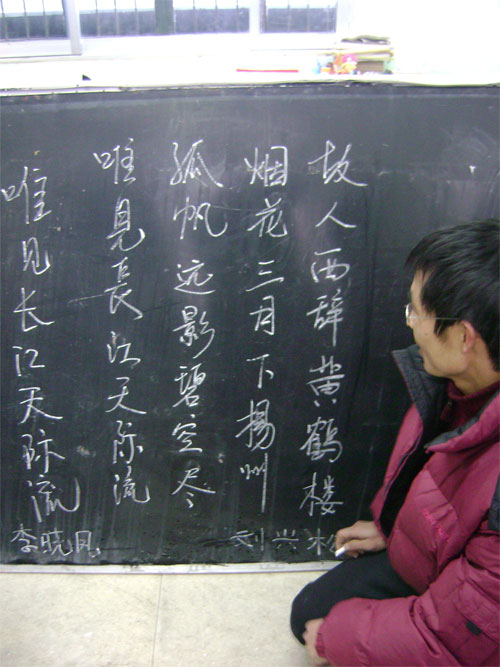 故人西辞黄鹤楼
烟花三月下揚州
孤帆远影碧空尽
唯見長江天际流
唯见长江天际流
刘兴
李晓